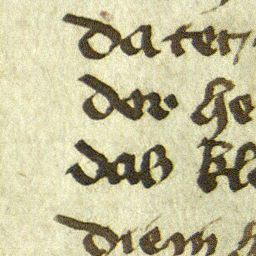 da ter
der he
das kl
diem